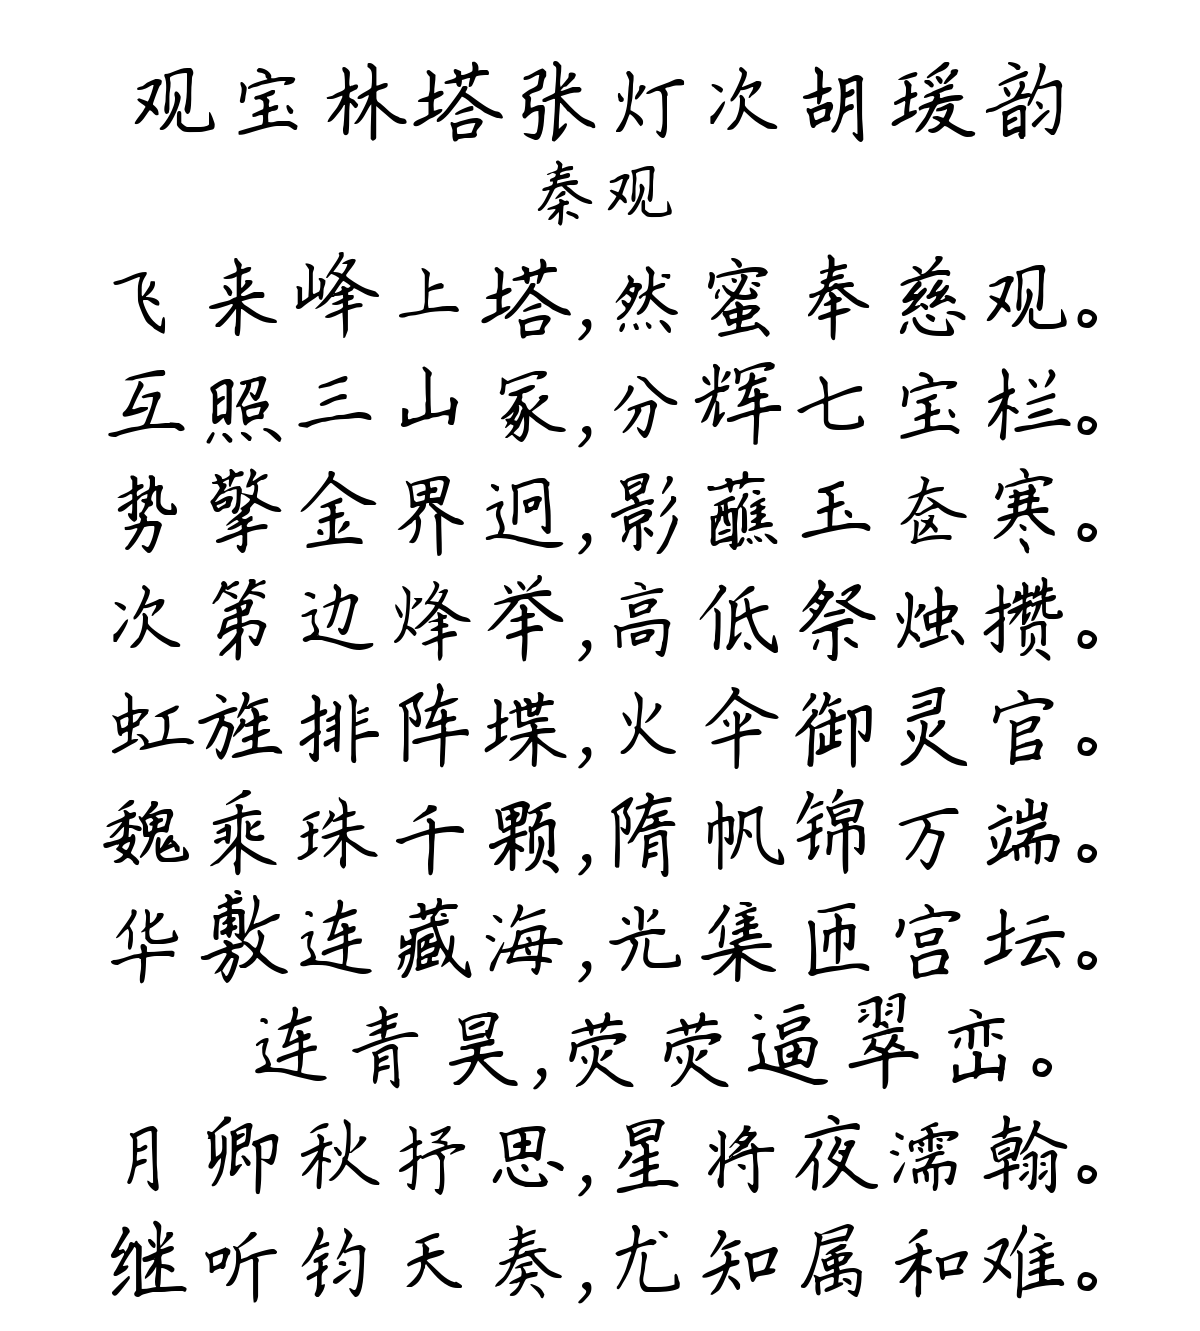 观宝林塔张灯次胡瑗韵
秦观
飞来峰上塔,然蜜奉慈观。
互照三山冢,分辉七宝栏。
势擎金界迥,影蘸玉奁寒。
次第边烽举,高低祭烛攒。
虹旌排阵堞,火伞御灵官。
魏乘珠千颗,隋帆锦万端。
华敷连藏海,光集匝宫坛。
连青昊,荧荧逼翠峦。
月卿秋抒思,星将夜濡翰。
继听钧天奏,尤知属和难。